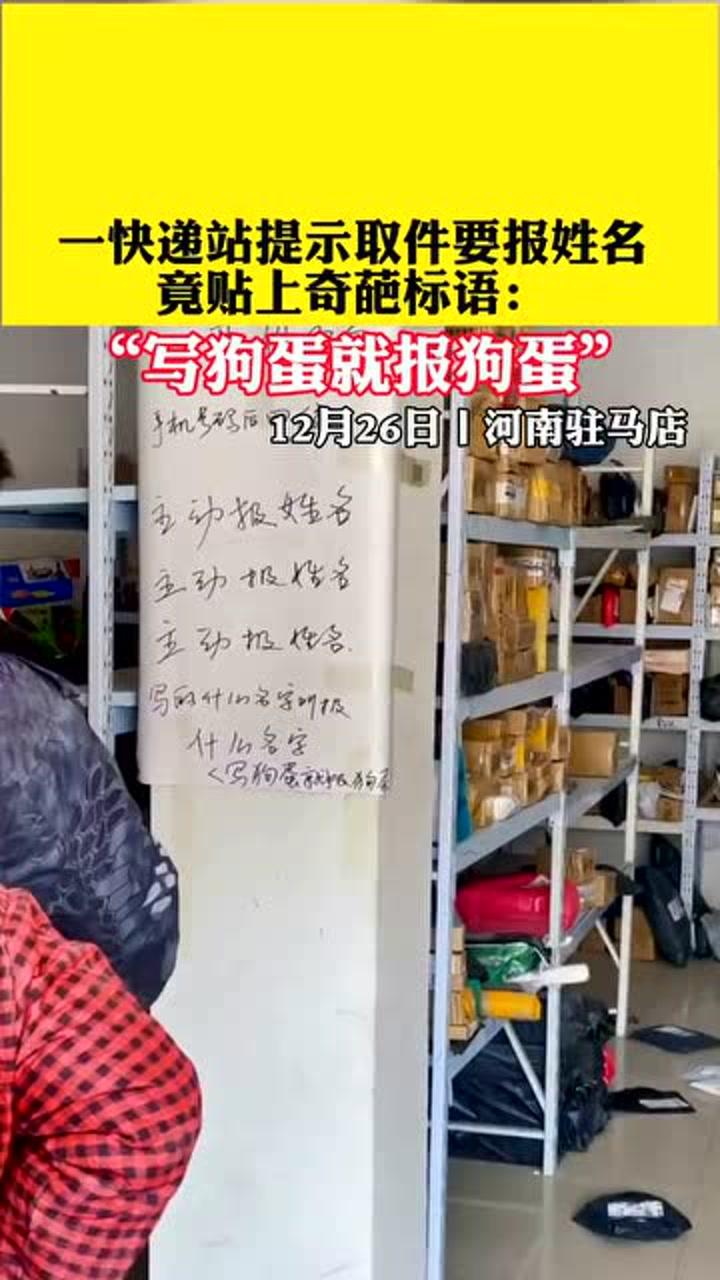 一快递站提示取件要报姓名
竟贴上奇葩标语：
“写狗蛋就报狗蛋”
12月26日丨河南驻马店
手机号码后四
主动报姓名
主动报姓名
主动报姓名.
写的什么名字就报
什么名字
<写狗蛋就报狗蛋